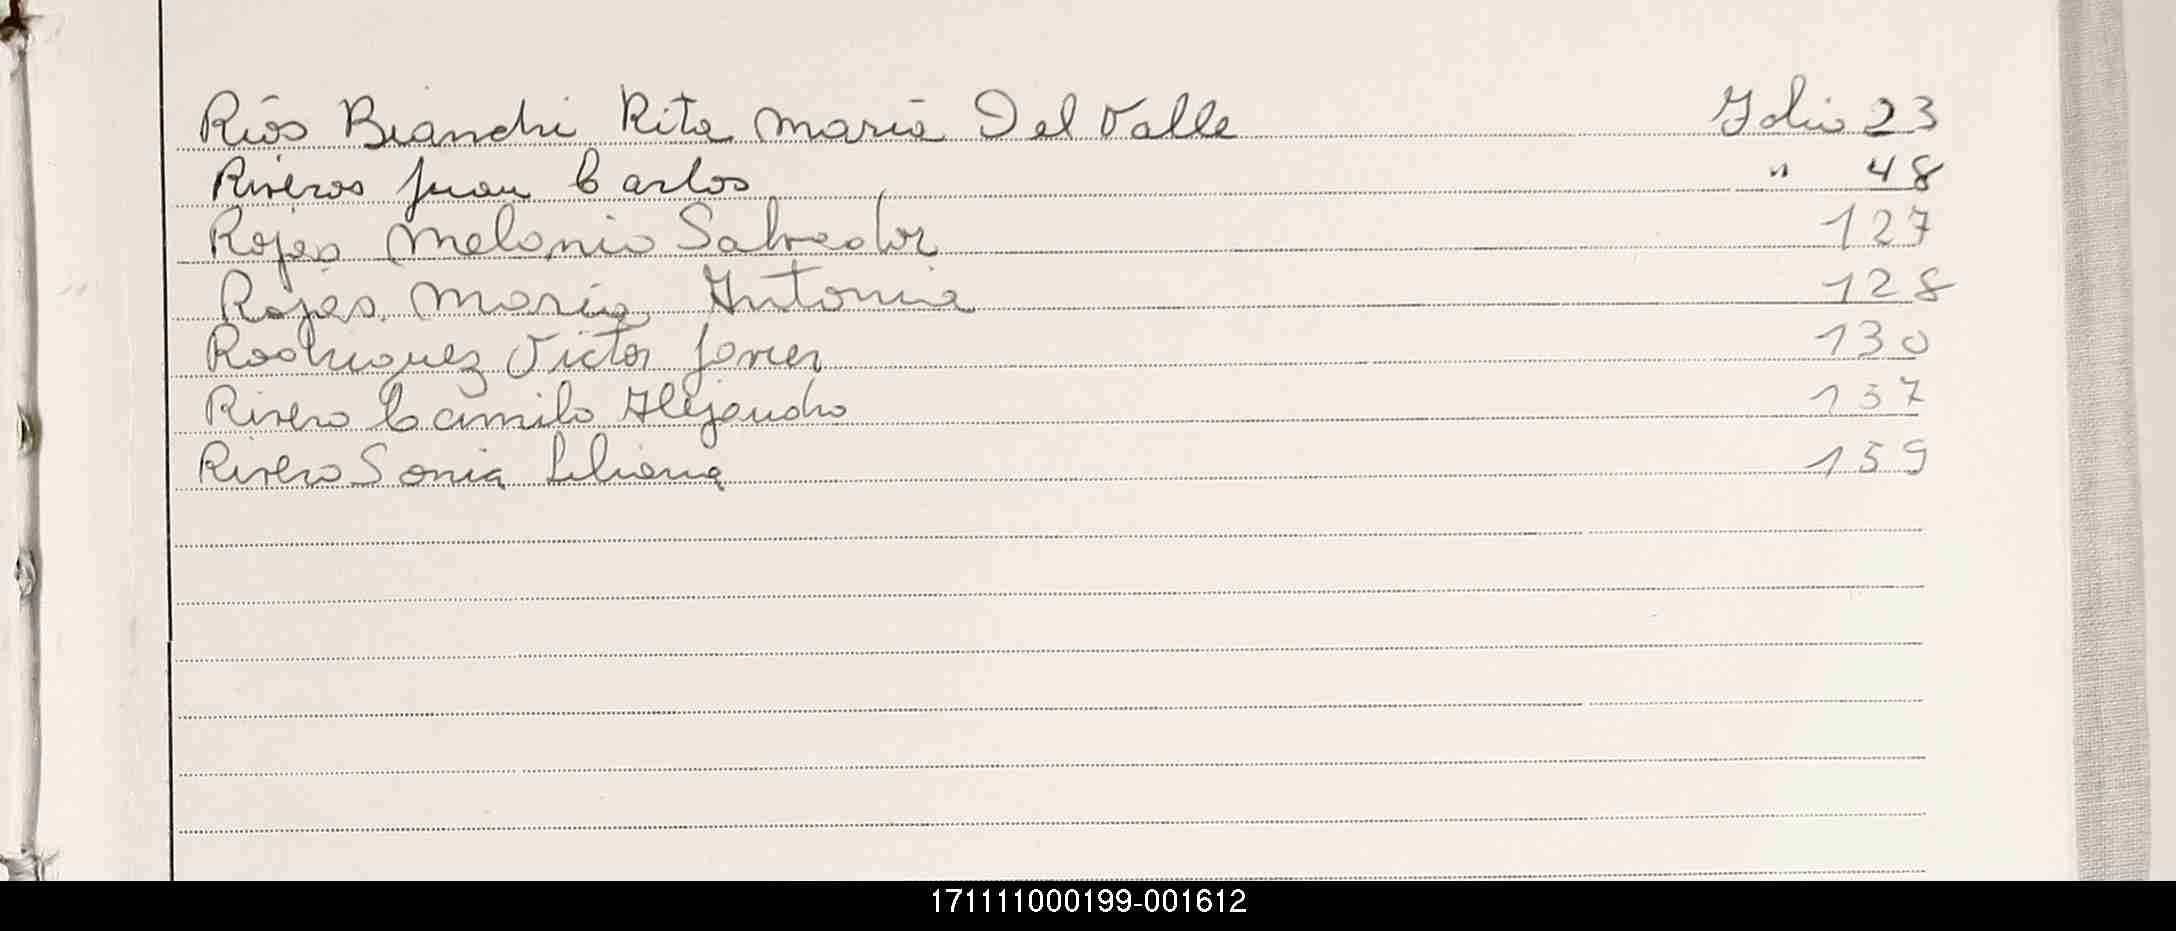 Ríos Bianchi Rita María Del Valle Folio 23
Riveros Juan Carlos " 48
Rojas Melanio Salvador 127
Rojas María Antonia 128
Rodriguez Victor Javier 130
Rivero Camilo Alejandro 137
Rivero Sonia Liliana 159
171111000199-001612